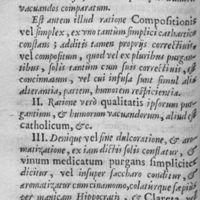 vacuandos comparatum.
Est autem illud ratione Compositionis
vel simplex, ex uno tantum simplici cathartico
constans; additis tamen propriis correctivis,
vel compositum, quod vel ex pluribus purgan-
tibus, solis tantum cum suis correctivis, est
concinnatum, vel cui infusa sunt simul alia
alterantia, partem, humorem respicientia.
II. Ratione verò qualitatis ipsorum pur-
gantium, & humorum vacuandorum, aliud est
catholicum, &c.
III. Denique vel sine dulcoratione, & aro-
matizatione, ex iam dictis solis constatur, &
vinum medicatum purgans simpliciter
dicitur, vel insuper saccharo conditur, &
aromatizatur cinnamomo, colaturque sæpius
per manicam Hippocratis, & Claretum vel